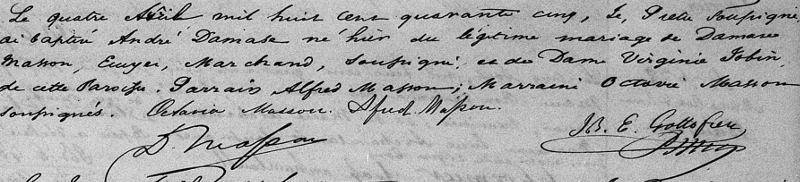 Le quatre Avril mil huit cent quarante cinq, Je, Prete soussigné
ai baptisé André Damase né hier du légitime mariage de Damase
Masson, Ecuyer, Marchand, soussigné et de Dame Virginie Jobin,
de cette Paroisse. Parrain Alfred Masson; Marraine Octavie Masson
soussignés. Octavie Masson. Alfred Masson.
D. Masson
J.B. E. Gottofrey